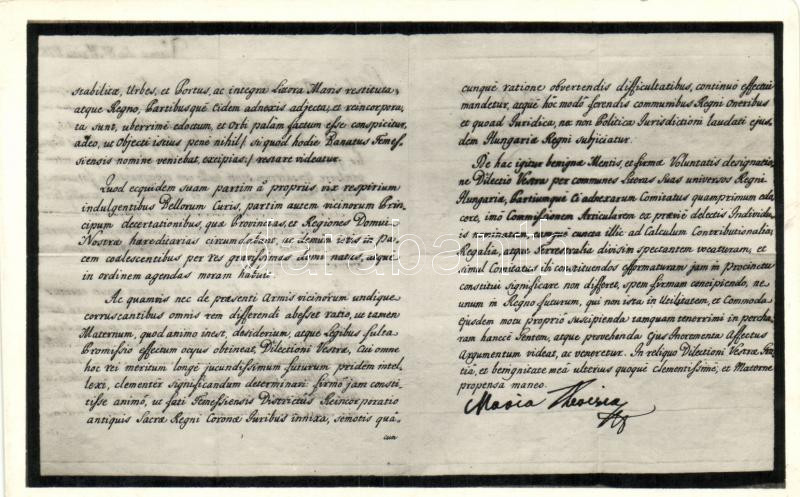 stabilitæ, Urbes, et Portus, ac integra Litora Maris restituta,
atque Regno, Partibusque Eidem adnexis adjecta, et reincorpora,
ta sunt, uberrime edoctum, et Orbi palam factum esse conspicitur,
adeo, ut Objecti istius pene nihil /: si quod hodie Banatus Temes=
siensis nomine veniebat, excipias :/ restare videatur.
Quod ecquidem suam partim a propriis vix respirium
indulgentibus Bellorum Curis, partim autem vicinorum Prin
cipum decertationibus, qua Provincias, et Regiones Domui
Nostræ hæreditarias circumdabant, ac demum istis in pa
cem coalescentibus per res gravissimas domi natas, atque
in ordinem agendas moram habuit.
Ac quamvis nec de præsenti Armis vicinorum undique
corruscantibus omnis rem differendi abesset ratio, ut tamen
Maternum, quod animo inest, desiderium, atque Legibus fulta
Promissio effectum ocyus obtineat, Dilectioni Vestræ, Cui omne
hoc rei meritum longe jucundissimum futurum pridem intel
lexi, clementer significandum determinavi: firmo jam consti
tisse animo, ut fati Temessiensis Districtus Reincorporatio
antiquis Sacræ Regni Coronæ Juribus innixa, semotis qua=
cun
cunque ratione obvertendis difficultatibus, continuo effectui
mandetur, atque hoc modo ferendis communibus Regni Oneribus
et quoad Juridica, ne non Politica Jurisdictioni laudati ejus,
dem Hungariæ Regni subjiciatur.
De hac igitur benigna Mentis, et firmæ Voluntatis designatio
ne Dilectio Vestra per communes Litoras Suas universos Regni
Hungariæ, Partiumque Ei adnexarum Comitatus quamprimum edo
cere, imo Commissionem Articularem ex prævie delectis Individu
is nominatam, eorumque cuncta illic ad Calculum Contributionalia,
Regalia, atque Terrestralia divisim spectantem vocatturam, et
simul Comitatus ibi constituendos efformaturam jam in Procinctu
constitui significare non differet, spem firmam concipiendo, ne
unum in Regno futurum, qui non ista in Utilitatem, et Commoda
Ejusdem motu proprio suscipienda tamquam tenerrimi in percha,
ram hancce Gentem, atque provehenda Ejus Incrementa Affectus
Argumentum videat, ac veneretur. In reliquo Dilectioni Vestræ Gra
tia, et benignitate mea ulterius quoque clementissime, et Materne
propensa maneo.
Maria Theresia
darabanth